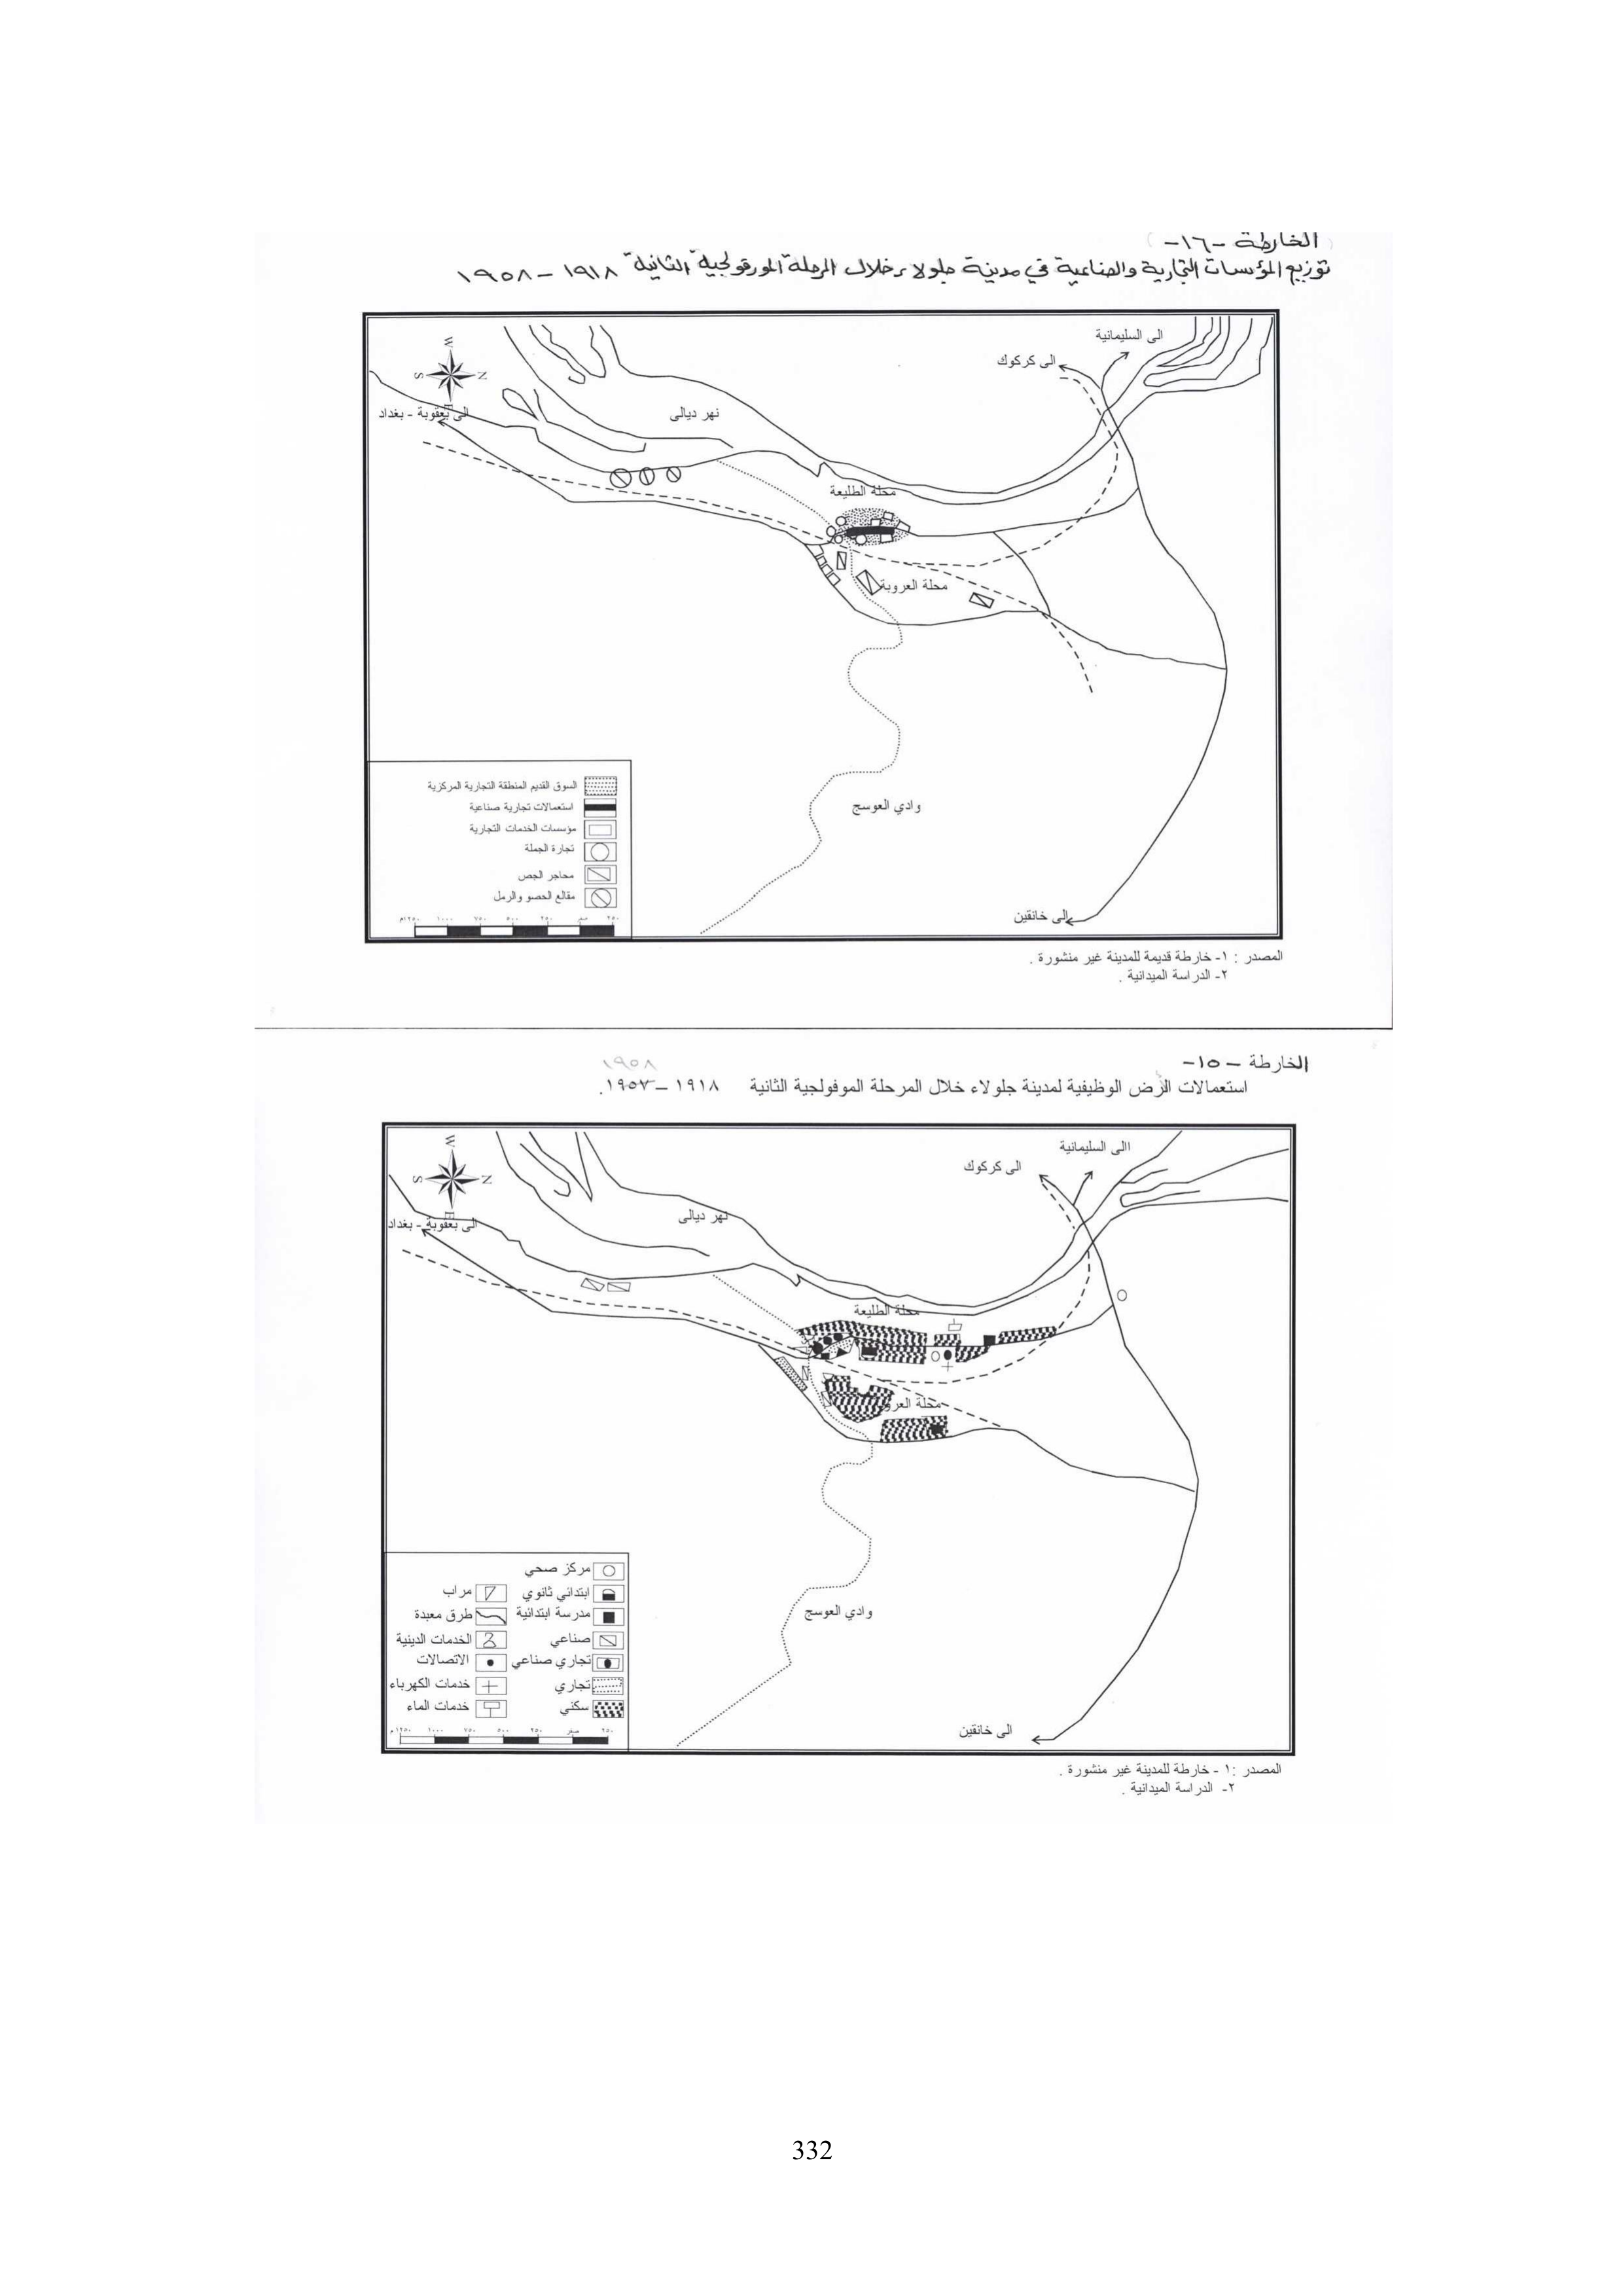 الخارطة -١٦-
توزيع المؤسسات التجارية والصناعية في مدينة جلولاء خلال المرحلة المورفولجية الثانية ١٩١٨ - ١٩٥٨
الى السليمانية
الى كركوك
W
S N
E
الى بعقوبة - بغداد
نهر ديالى
محلة الطليعة
محلة العروبة
وادي العوسج
الى خانقين
السوق القديم المنطقة التجارية المركزية
استعمالات تجارية صناعية
مؤسسات الخدمات التجارية
تجارة الجملة
محاجر الجص
مقالع الحصو والرمل
٢٥٠ صفر ٢٥٠ ٥٠٠ ٧٥٠ ١٠٠٠ ١٢٥٠م
المصدر : ١- خارطة قديمة للمدينة غير منشورة .
٢- الدراسة الميدانية .
الخارطة - ١٥-
١٩٥٨
استعمالات الرض الوظيفية لمدينة جلولاء خلال المرحلة الموفولجية الثانية ١٩١٨ - ١٩٥٧.
االى السليمانية
الى كركوك
W
S N
E
الى بعقوبة - بغداد
نهر ديالى
محلة الطليعة
محلة العرو
وادي العوسج
الى خانقين
مركز صحي
ابتدائي ثانوي مراب
مدرسة ابتدائية طرق معبدة
صناعي الخدمات الدينية
تجاري صناعي الاتصالات
تجاري خدمات الكهرباء
سكني خدمات الماء
٢٥٠ صفر ٢٥٠ ٥٠٠ ٧٥٠ ١٠٠٠ ١٢٥٠م
المصدر :١ - خارطة للمدينة غير منشورة .
٢- الدراسة الميدانية .
332